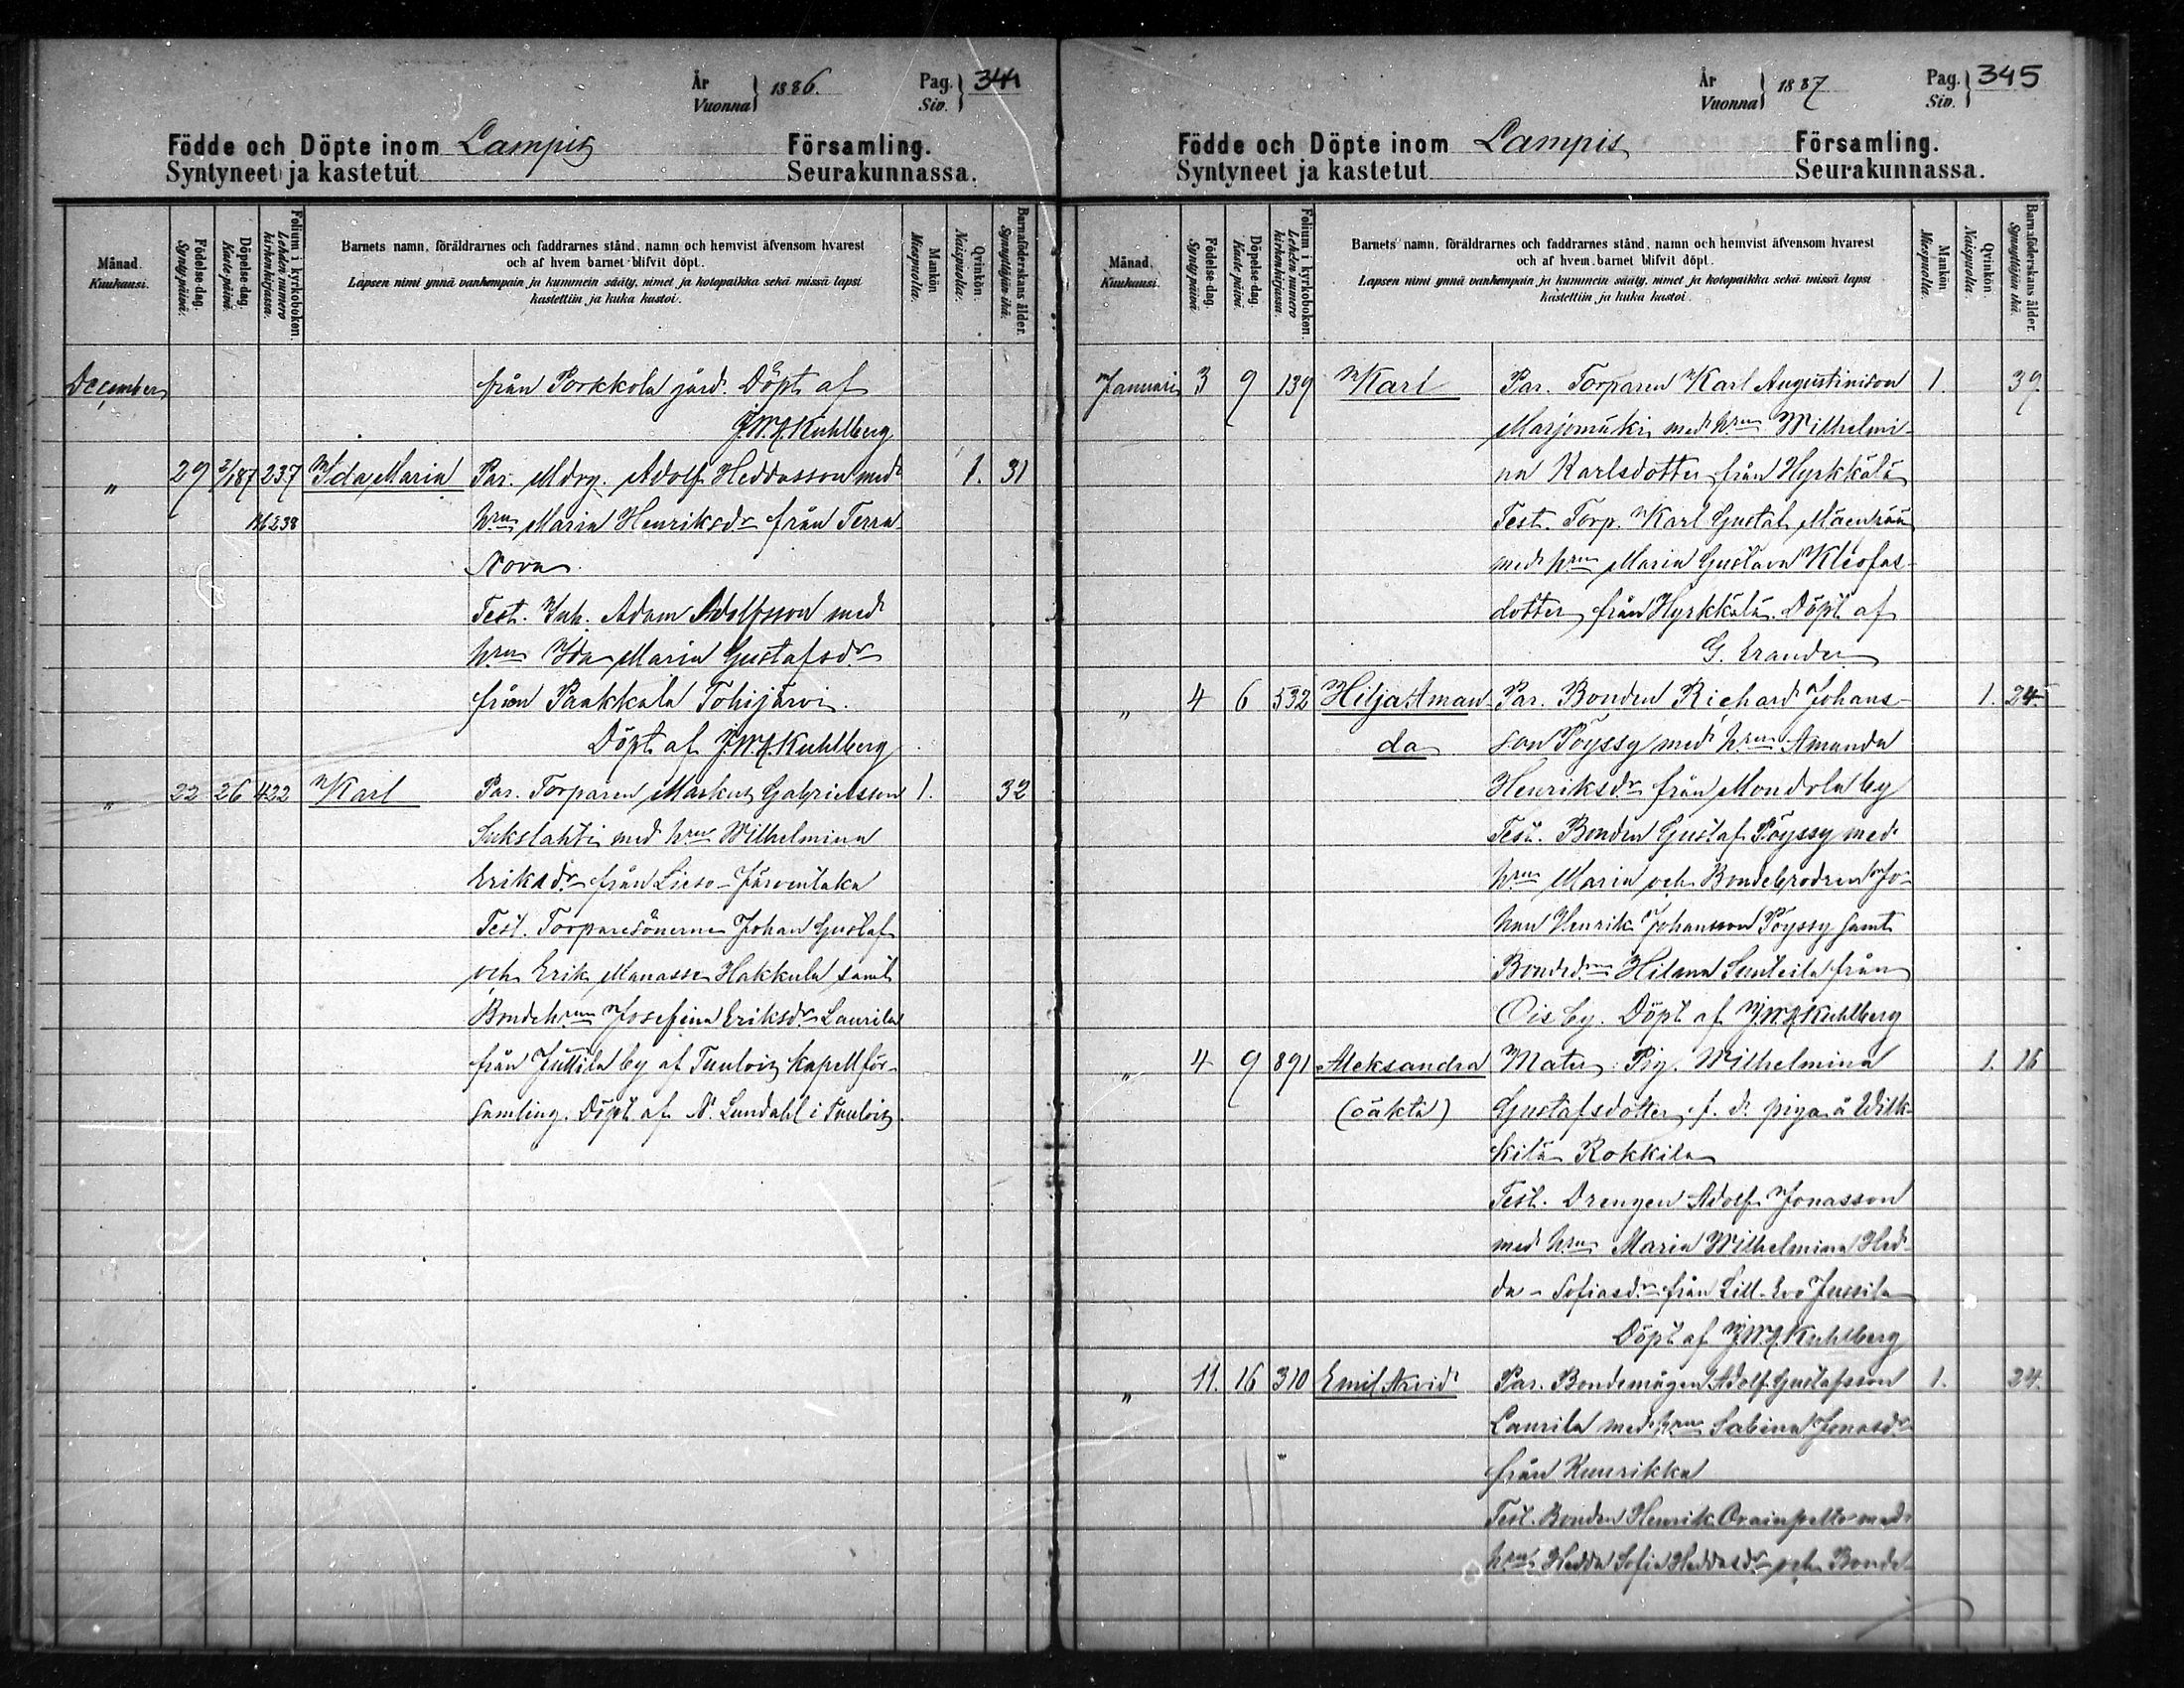 År
Vuonna } 1886.
Pag.
Siv. } 344
Födde och Döpte inom Lampis Församling.
Syntyneet ja kastetut Seurakunnassa.
Månad.
Kuukausi.
Födelse-dag.
Syntypäivä.
Döpelse-dag.
Kaste-päivä.
Folium i kyrkoboken.
Lehden numero
kirkonkirjassa.
Barnets namn, föräldrarnes och faddrarnes stånd, namn och hemvist äfvensom hvarest
och af hvem barnet blifvit döpt.
Lapsen nimi ynnä vanhempain ja kummein sääty, nimet ja kotopaikka sekä missä lapsi
kastettiin ja kuka kastoi.
Mankön
Miespuolia.
Qvinkön.
Naispuolia.
Barnaföderskans ålder.
Synnyttäjän ikä.
December från Porkkola gård. Döpt af
J.W.A. Kuhlberg
" 29 2/1 87 237 Ida Maria Par. Mdrg. Adolf Heddasson med 1. 31
238 hru Maria Henriksdr från Terra
Nova
Test. Inh. Adam Adolfsson med
hru Ida Maria Gustafsdr
från Paakkola Tohijärvi.
Döpt af J.W.A. Kuhlberg
" 22 26 422 Karl Par. Torparen Markus Gabrielsson 1. 32
Sukslahti med hru Wilhelmina
Eriksdr från Lieso Järventaka
Test. Torparesönerne Johan Gustaf
och Erik Manasse Hakkula samt
Bondehrun Josefina Eriksdr Laurila
från Juttila by af Tuulois kapellför-
samling. Döpt af N. Lundahl i Tuulois.
År
Vuonna } 1887
Pag.
Siv. } 345
Födde och Döpte inom Lampis Församling.
Syntyneet ja kastetut Seurakunnassa.
Månad.
Kuukausi.
Födelse-dag.
Syntypäivä.
Döpelse-dag.
Kaste-päivä.
Folium i kyrkoboken.
Lehden numero
kirkonkirjassa.
Barnets namn, föräldrarnes och faddrarnes stånd, namn och hemvist äfvensom hvarest
och af hvem barnet blifvit döpt.
Lapsen nimi ynnä vanhempain ja kummein sääty, nimet ja kotopaikka sekä missä lapsi
kastettiin ja kuka kastoi.
Mankön.
Miespuolia.
Qvinkön.
Naispuolia.
Barnaföderskans ålder.
Synnyttäjän ikä.
Januari 3 9 139 Karl Par. Torparen Karl Augustinison 1. 39
Marjomäki med hrun Wilhelmi-
na Karlsdotter från Hyrkkälä
Test. Torp. Karl Gustaf Mäenpää
med hrun Maria Gustava Kleofas-
dotter från Hyrkkälä. Döpt af
G. Erander
" 4 6 532 Hilja Aman- Par. Bonden Richard Johans- 1. 24.
da son Pöyssy med hrun Amanda
Henriksdr från Mondola by
Test. Bonden Gustaf Pöyssy med
hrun Maria och Bondebrodren Jo-
han Henrik Johansson Pöyssy samt
Bonded. Hilma Suuteila från
Ois by. Döpt af J.W.A. Kuhlberg
" 4 9 891 Aleksandra Mater: Pig. Wilhelmina 1. 18
(oäkta) Gustafsdotter, f. d. piga å Wilk-
kilä Rokkila
Test. Drengen Adolf Jonasson
med hru Maria Wilhelmina Hed-
da-Sofiasdr från Lill-Evo Jussila
Döpt af J.W.A. Kuhlberg
" 11. 16 310 Emil Arvid Par. Bondemågen Adolf Gustafsson 1. 24.
Laurila med hru Sabina Jonasdr
från Kuurikka
Test. Bonden Henrik med
hru Hedda Sofia Heddasdr och Bonde-